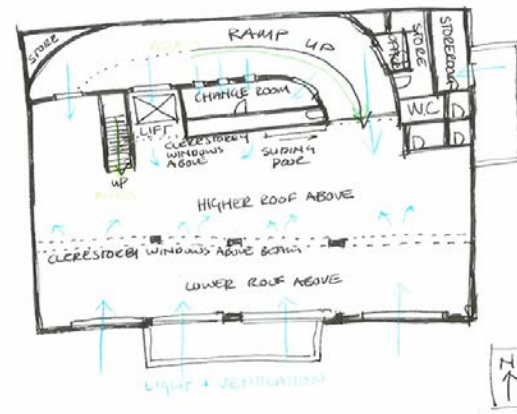 STORE
RAMP
UP
STORE
STOREROOM
CHANGE ROOM
LIFT
W.C
D
D
D
CLERESTOREY
WINDOWS
ABOVE
SLIDING
DOOR
UP
HIGHER ROOF ABOVE
CLERESTOREY WINDOWS ABOVE BEAM
LOWER ROOF ABOVE
LIGHT + VENTILATION
N